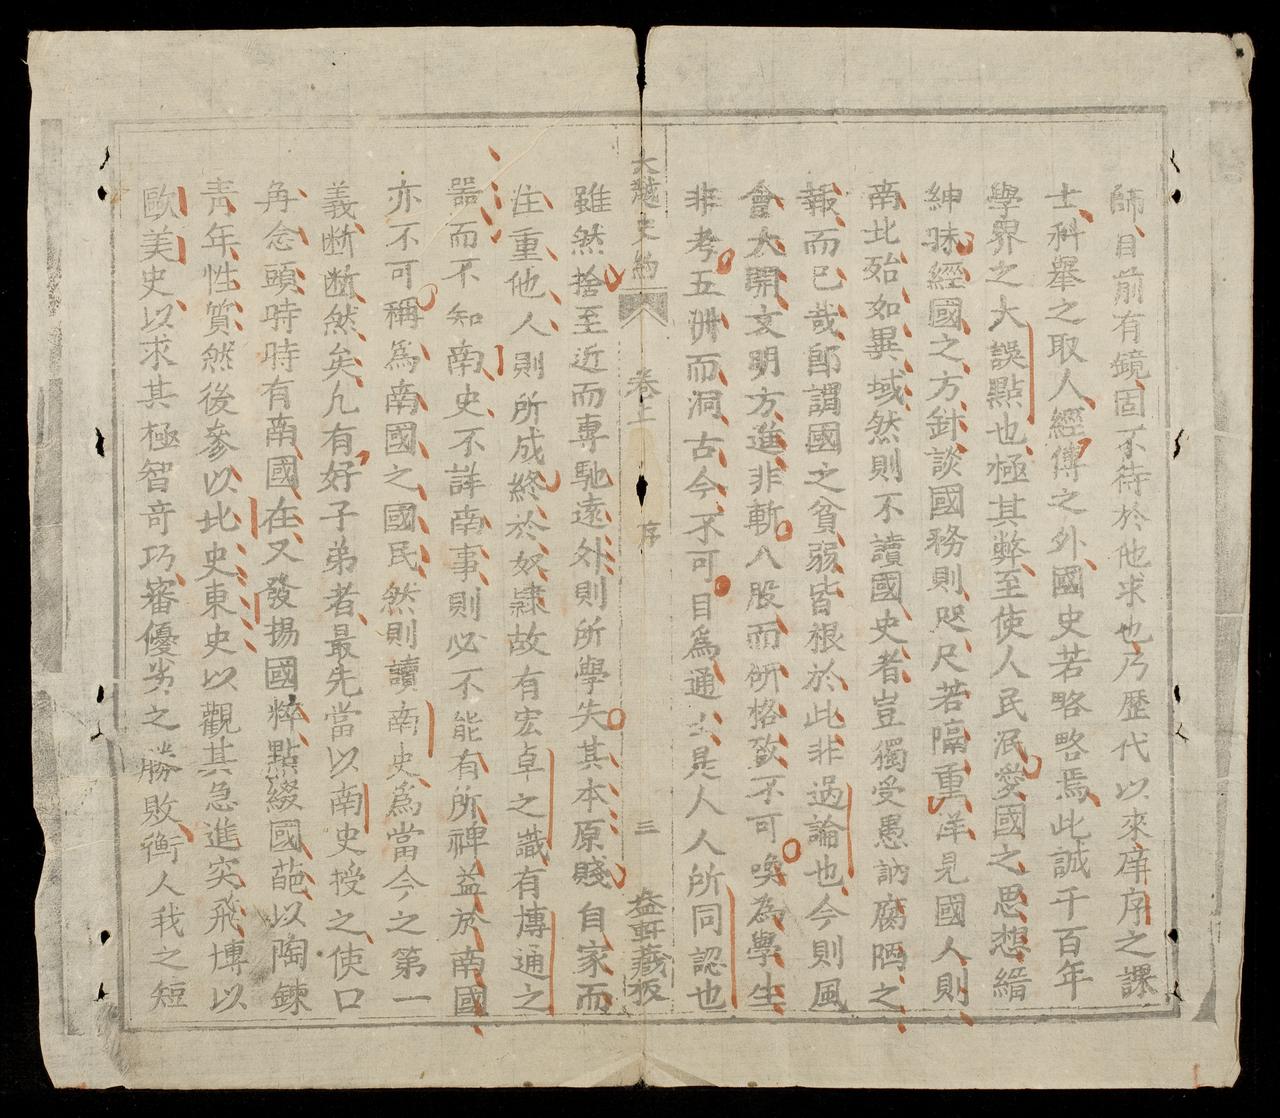 師目前有鏡固不待於他求也乃歷代以來庠序之課
士科舉之取人經傳之外國史若略略焉此誠千百年
學界之大誤點也極其弊至使人民泯愛國之思想縉
紳昧經國之方針談國務則咫尺若隔重洋見國人則
南北殆如異域然則不讀國史者豈獨受愚訥腐陋之
報而已哉即謂國之貧弱皆根於此非過論也今則風
會大開文明方進非斬八股而所格致不可喚為學生
非考五洲而洞古今不可目爲通士是人人所同認也
大越史約 卷上 序 三 益軒藏板
雖然捨至近而專馳遠外則所學失其本原賤自家而
注重他人則所成終於奴隸故有宏卓之識有博通之
器而不知南史不詳南事則必不能有所裨益於南國
亦不可稱爲南國之國民然則讀南史爲當今之第一
義斷斷然矣凡有好子弟者最先當以南史授之使口
角念頭時時有南國在又發揚國粹點綴國葩以陶鍊
靑年性質然後參以北史東史以觀其急進突飛博以
歐美史以求其極智奇巧審優劣之勝敗衡人我之短